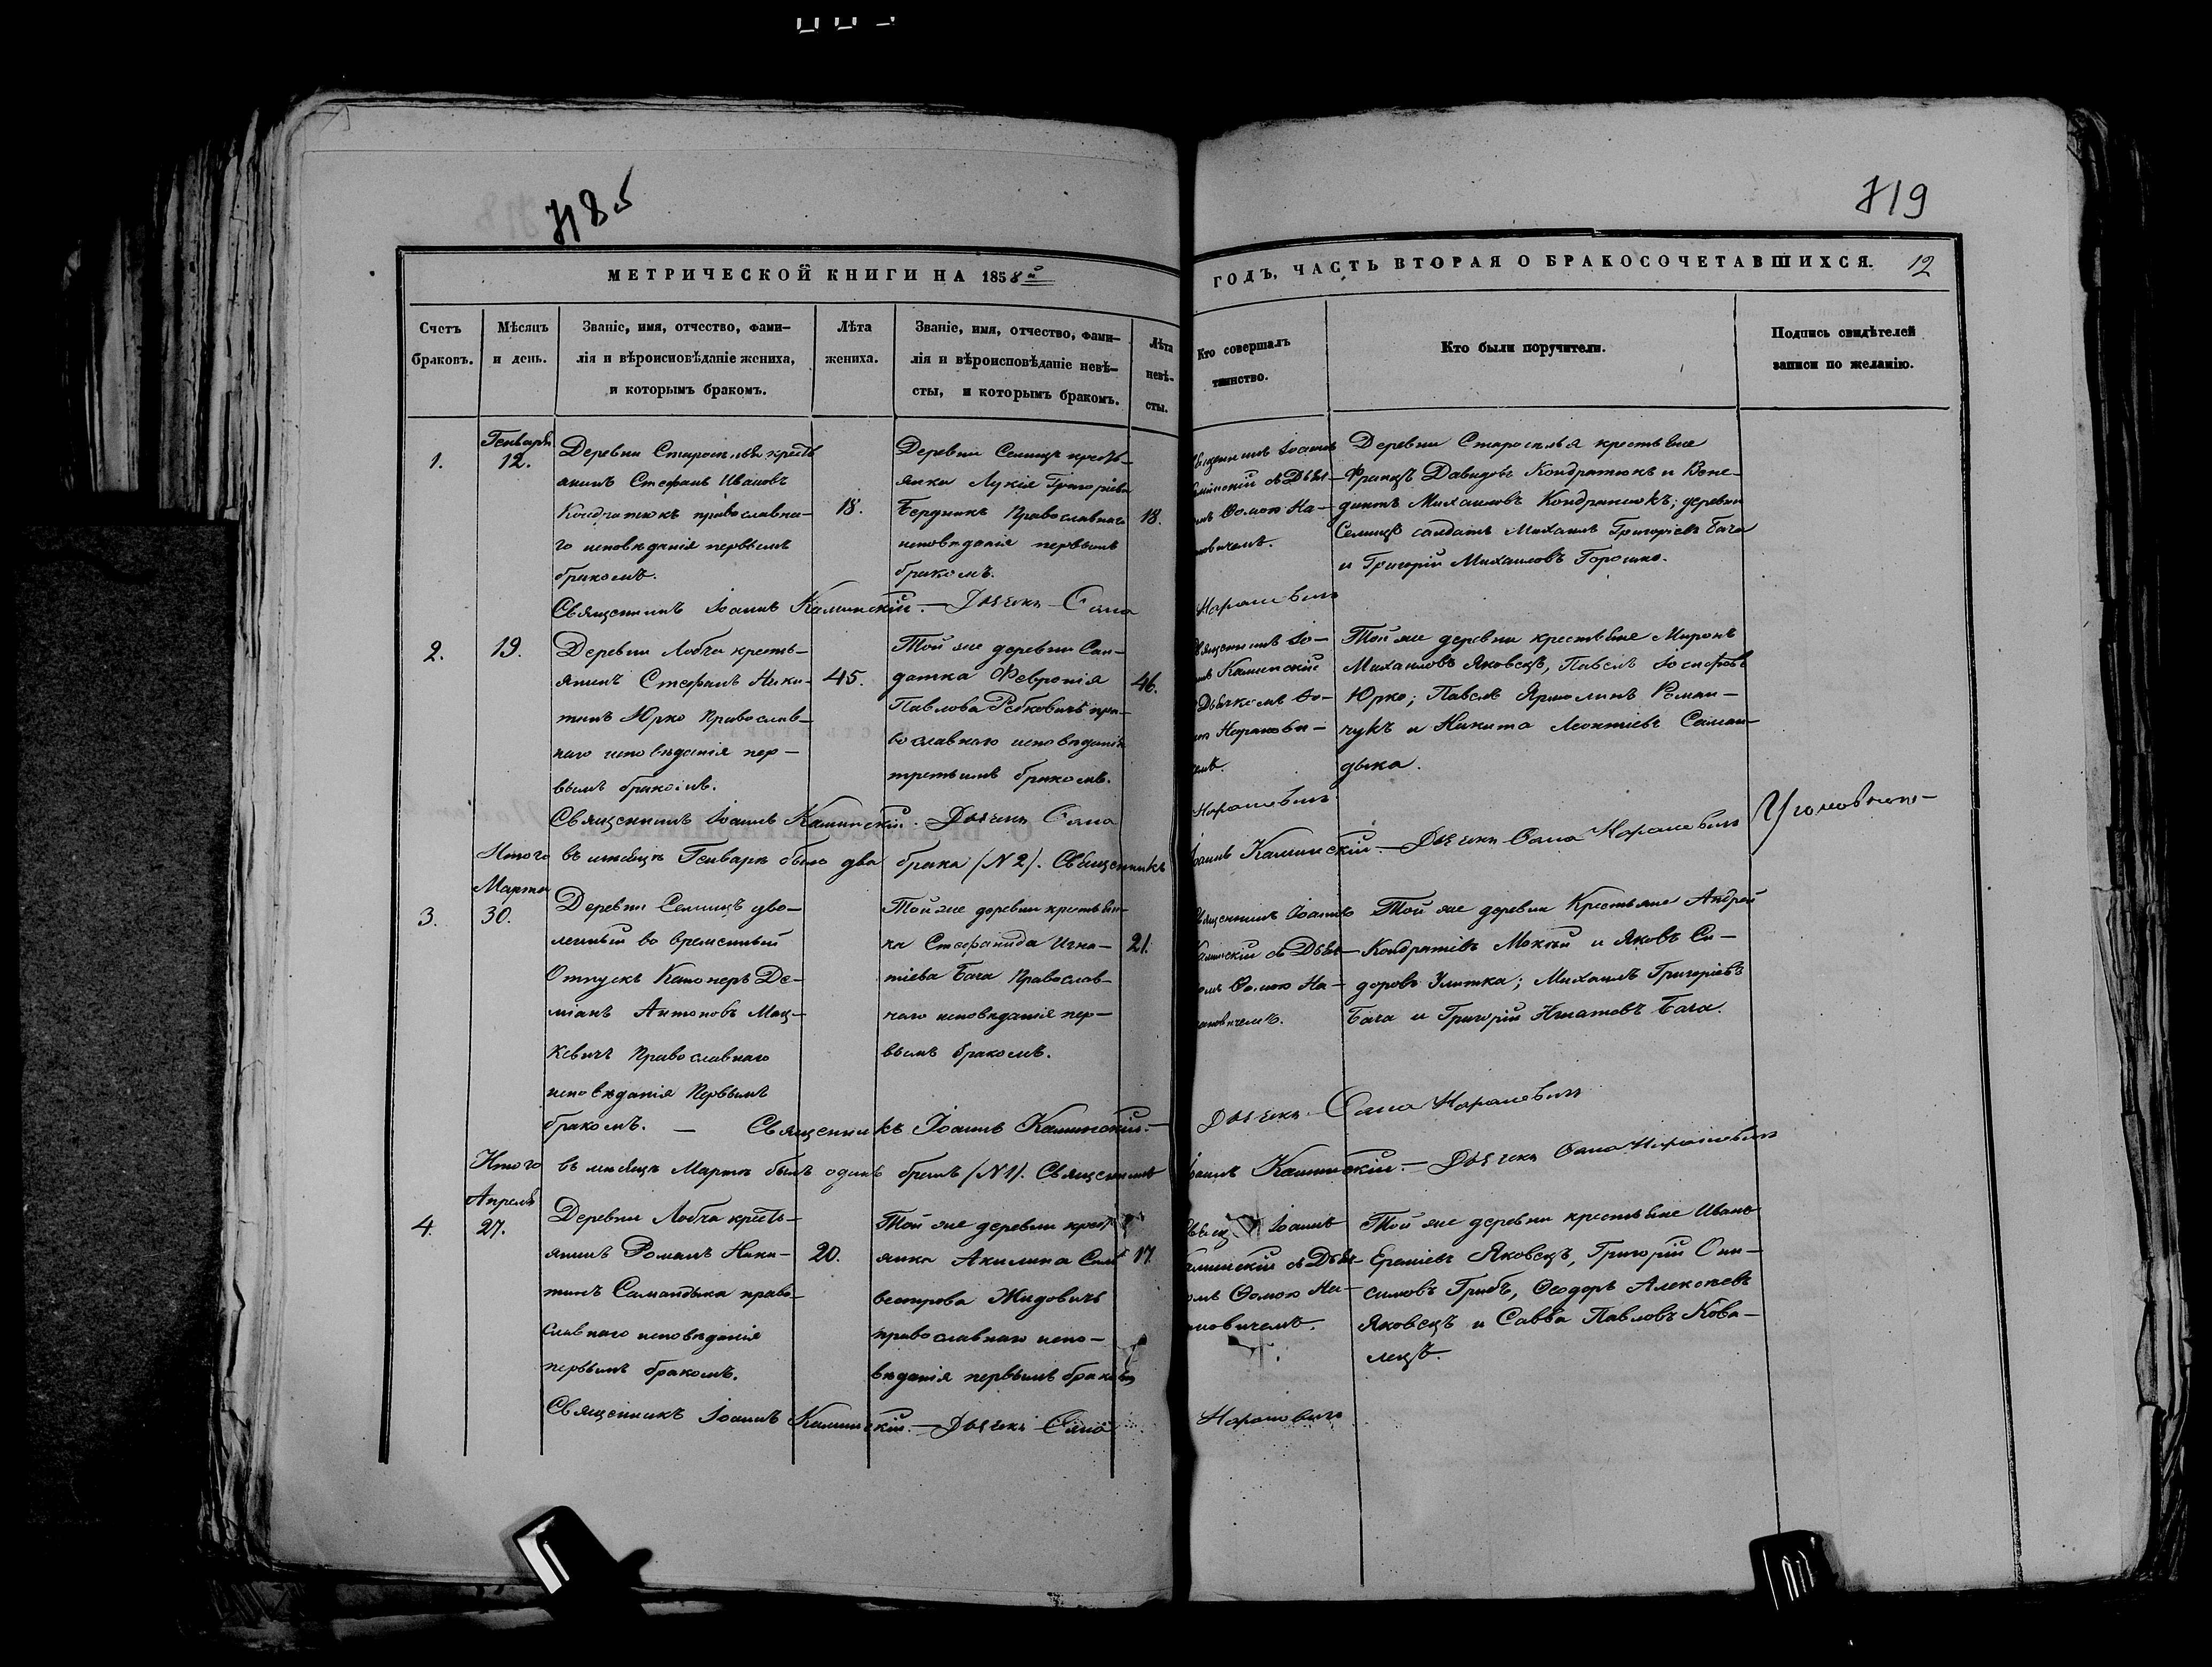 718 б
719
МЕТРИЧЕСКОЙ КНИГИ НА 1858й
ГОДЪ, ЧАСТЬ ВТОРАЯ О БРАКОСОЧЕТАВШИХСЯ.
12
Счетъ браковъ.
Мѣсяцъ и день.
Званіе, имя, отчество, фами-
лія и вѣроисповѣданіе жениха,
и которымъ бракомъ.
Лѣта жениха.
Званіе, имя, отчество, фами-
лія и вѣроисповѣданіе невѣ-
сты, и которымъ бракомъ.
Лѣта невѣ-
сты.
Кто совершалъ
таинство.
Кто были поручители.
Подпись свидѣтелей
записи по желанію.
1.
Генваря
12.
Деревни Старосилья кресть
янинъ Стефанъ Ивановъ
Кондратюкъ православна-
го исповѣданія первымъ
бракомъ.
18.
Деревни Селищъ кресть-
янка Лукія Григоріева
Бердникъ Православнаго
исповѣданія первымъ
бракомъ.
18.
Іоаннъ
съ Дьяч-
Ѳомою На-
Деревни Старосилья крестьяне
Францъ Давидовъ Кондратюкъ и Вене-
диктъ Михаиловъ Кондратюкъ; деревни
Селищъ солдатъ Михаилъ Григоріевъ Бача
и Григорій Михаиловъ Горошко.
Священникъ Іоаннъ Каминскій. — Дьячекъ Ѳома
Нарановичъ
2.
19.
Деревни Лобча кресть-
янинъ Стефанъ Ники-
тинъ Юрко Православ-
наго исповѣданія пер-
вымъ бракомъ.
45.
Той же деревни Сол-
датка Февронія
Павлова Рабковичъ пра-
вославнаго исповѣданія
третьимъ бракомъ.
46.
Священникъ Іо-
Каминскій
Дьячкомъ Ѳо-
Наранови-
Той же деревни крестьяне Миронъ
Михаиловъ Яковецъ, Павелъ Іосифовъ
Юрко; Павелъ Ярмолинъ Роман-
чукъ и Никита Леонтіевъ Саман-
дыка.
Священникъ Іоаннъ Каминскій. Дьячекъ Ѳома
Нарановичъ
Итого въ мѣсяцѣ Генварѣ было два брака (№ 2). Священникъ
Іоаннъ Каминскій. — Дьячекъ Ѳома Нарановичъ
3.
Марта
30.
Деревни Селищъ уво-
ленный во временный
Отпускъ Канонеръ Де-
міанъ Антоновъ Мац-
кевичъ Православнаго
исповѣданія Первымъ
бракомъ. —
Той же деревни крестьян-
ка Стефанида Игна-
тіева Бача Православ-
наго исповѣданія пер-
вымъ бракомъ.
21.
Священникъ Іоаннъ
Каминскій съ Дьяч-
Ѳомою На-
Той же деревни Крестьяне Андрей
Кондратіевъ Мокчый и Яковъ Си-
доровъ Улитка; Михаилъ Григоріевъ
Бача и Григорій Игнатовъ Бача.
Священникъ Іоаннъ Каминскій. —
Дьячекъ Ѳома Нарановичъ
Итого въ мѣсяцѣ Мартѣ былъ одинъ бракъ (№ 1). Священникъ
Іоаннъ Каминскій. — Дьячекъ Ѳома Нарановичъ
4.
Апреля
27.
Деревни Лобча кресть-
янинъ Романъ Ники-
тинъ Самандыка право-
славнаго исповѣданія
первымъ бракомъ.
20.
Той же деревни крест
янка Акилина Сил
вестрова Жидовичъ
православнаго испо-
вѣданія первымъ бракомъ
17.
Іоаннъ
съ Дьяч-
Ѳомою На-
Той же деревни крестьяне Иванъ
Ереміевъ Яковецъ, Григорій Они-
симовъ Грибъ, Ѳеодоръ Алексѣевъ
Яковецъ и Савва Павловъ Кова-
лецъ.
Священникъ Іоаннъ Каминскій. — Дьячекъ Ѳома
Нарановичъ